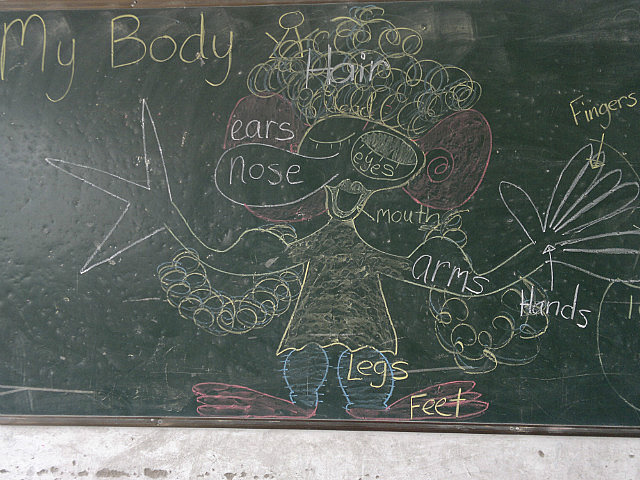 My Body
Hair
Head
Fingers
ears
eyes
nose
mouth
arms
Hands
Legs
Feet